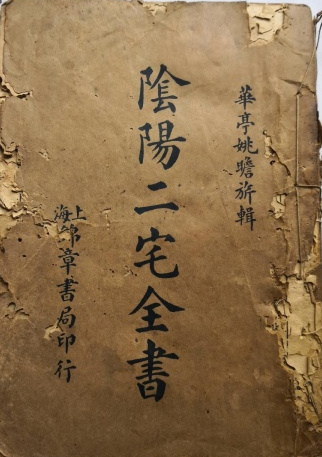 華亭姚瞻旂輯
陰陽二宅全書
上海錦章書局印行